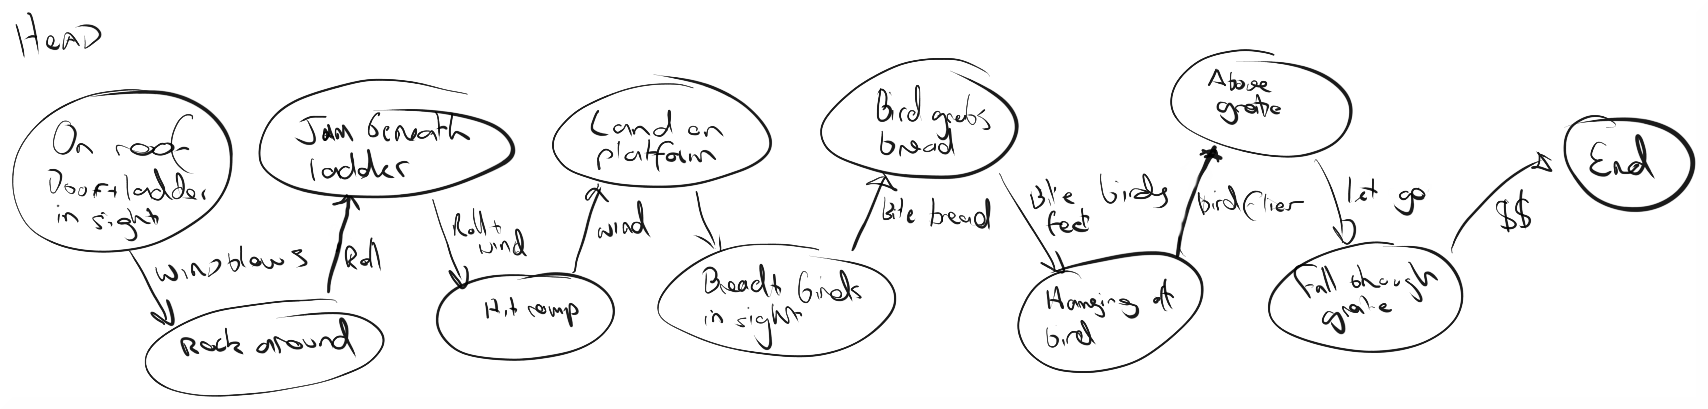 HEAD
On roof
Door + ladder
in sight
wind blows
Rock around
Roll
Jam beneath
ladder
Roll +
wind
Hit ramp
wind
Land on
platform
Bread + birds
in sight
Bite bread
Bird grabs
bread
Bite birds
feet
Hanging off
bird
Bird flies
Above
grate
let go
Fall through
grate
$$
End